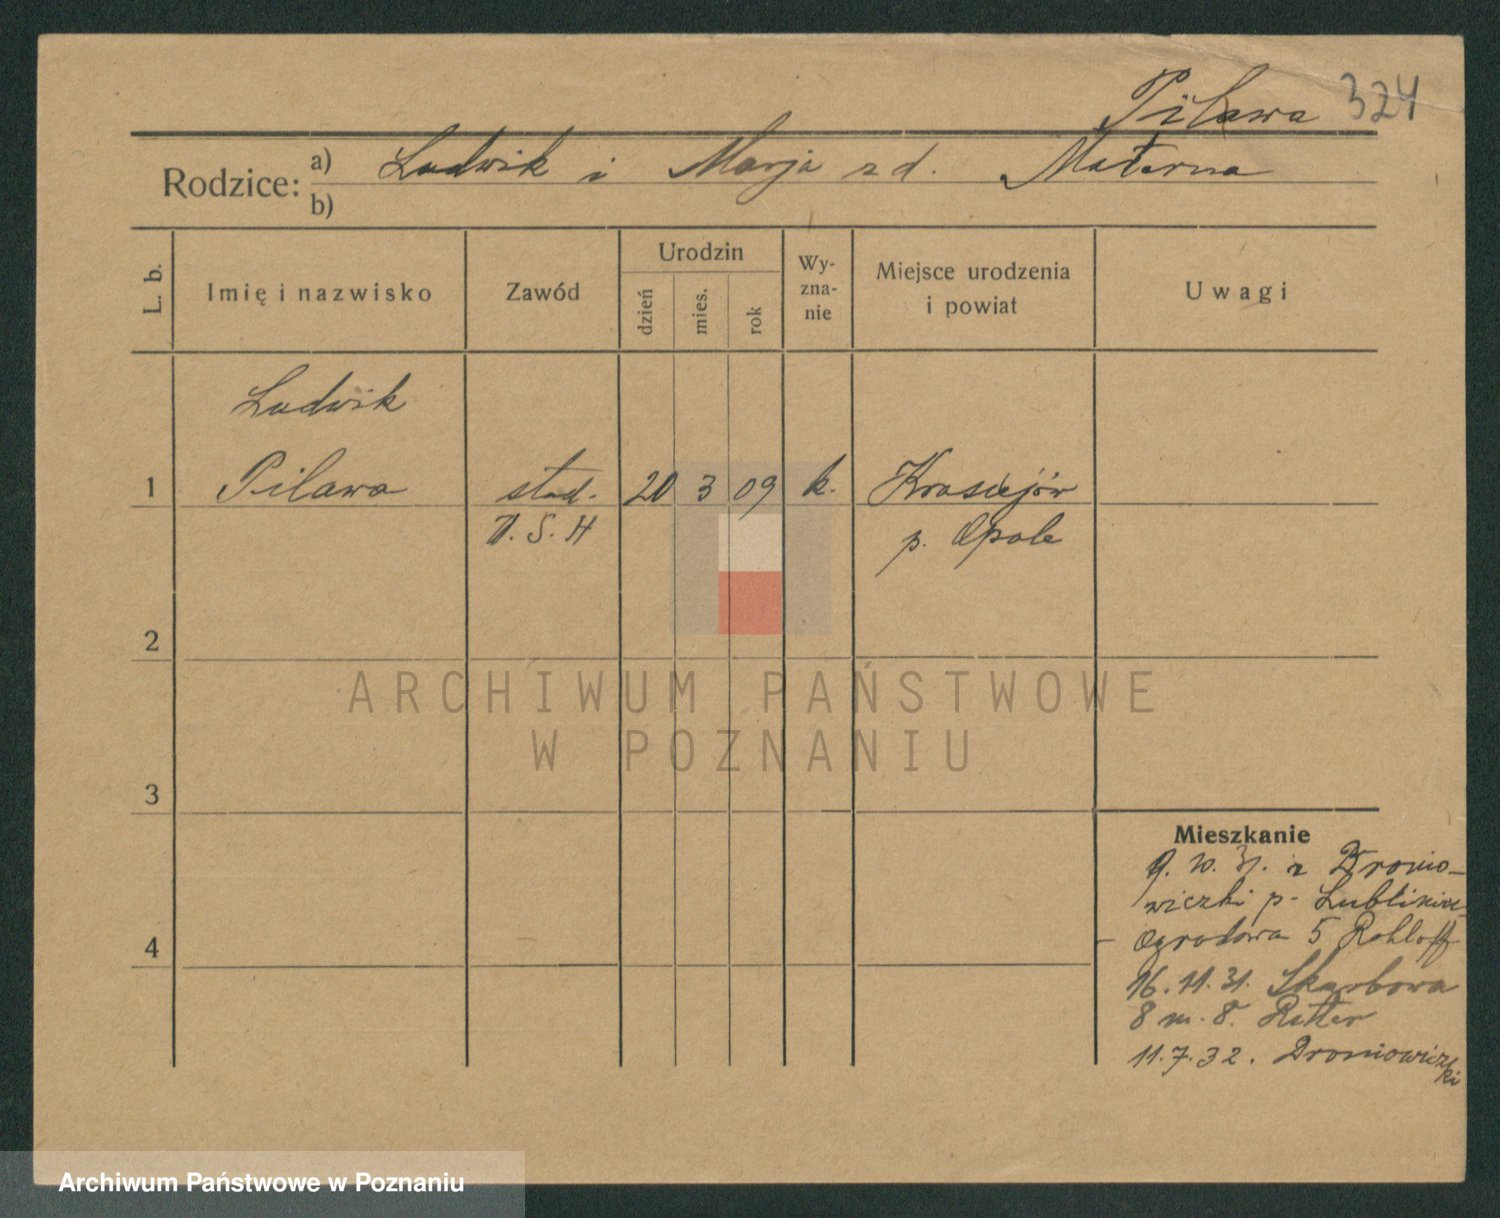 Pilawa 324
Rodzice: a) Ludwik i Marja z d. Materna
b)
L. b. Imię i nazwisko Zawód Urodzin dzień mies. rok Wy-zna-nie Miejsce urodzenia i powiat Uwagi
Ludwik
1 Pilawa stud. 20 3 09 k. Krasiejów
W.S.H p. Opole
2
ARCHIWUM PAŃSTWOWE
W POZNANIU
3
Mieszkanie
9. 10. 31. z Dronio-
wiczki p. Lubliniec
4 Ogrodowa 5 Rohloff
16. 11. 31. Skarbowa
8 m. 8. Ritter
11.7.32. Droniowiczki
Archiwum Państwowe w Poznaniu